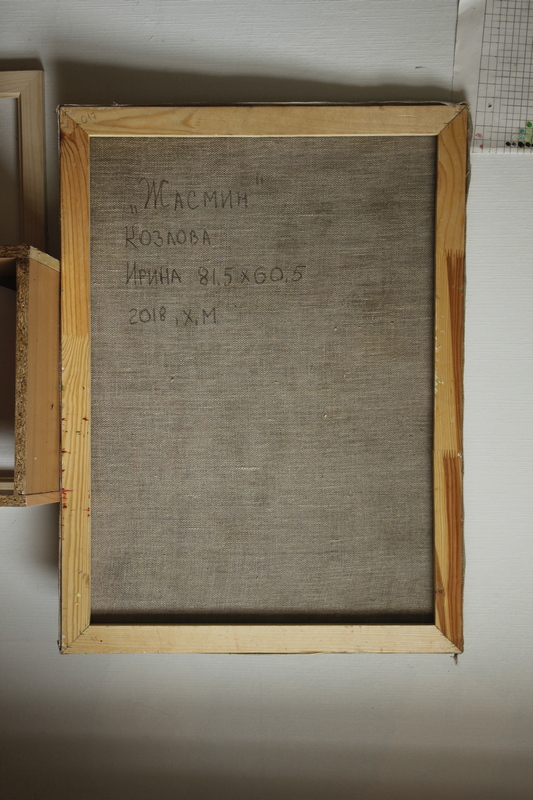 „Жасмин"
Козлова
Ирина 81,5 x 60,5
2018, х,м